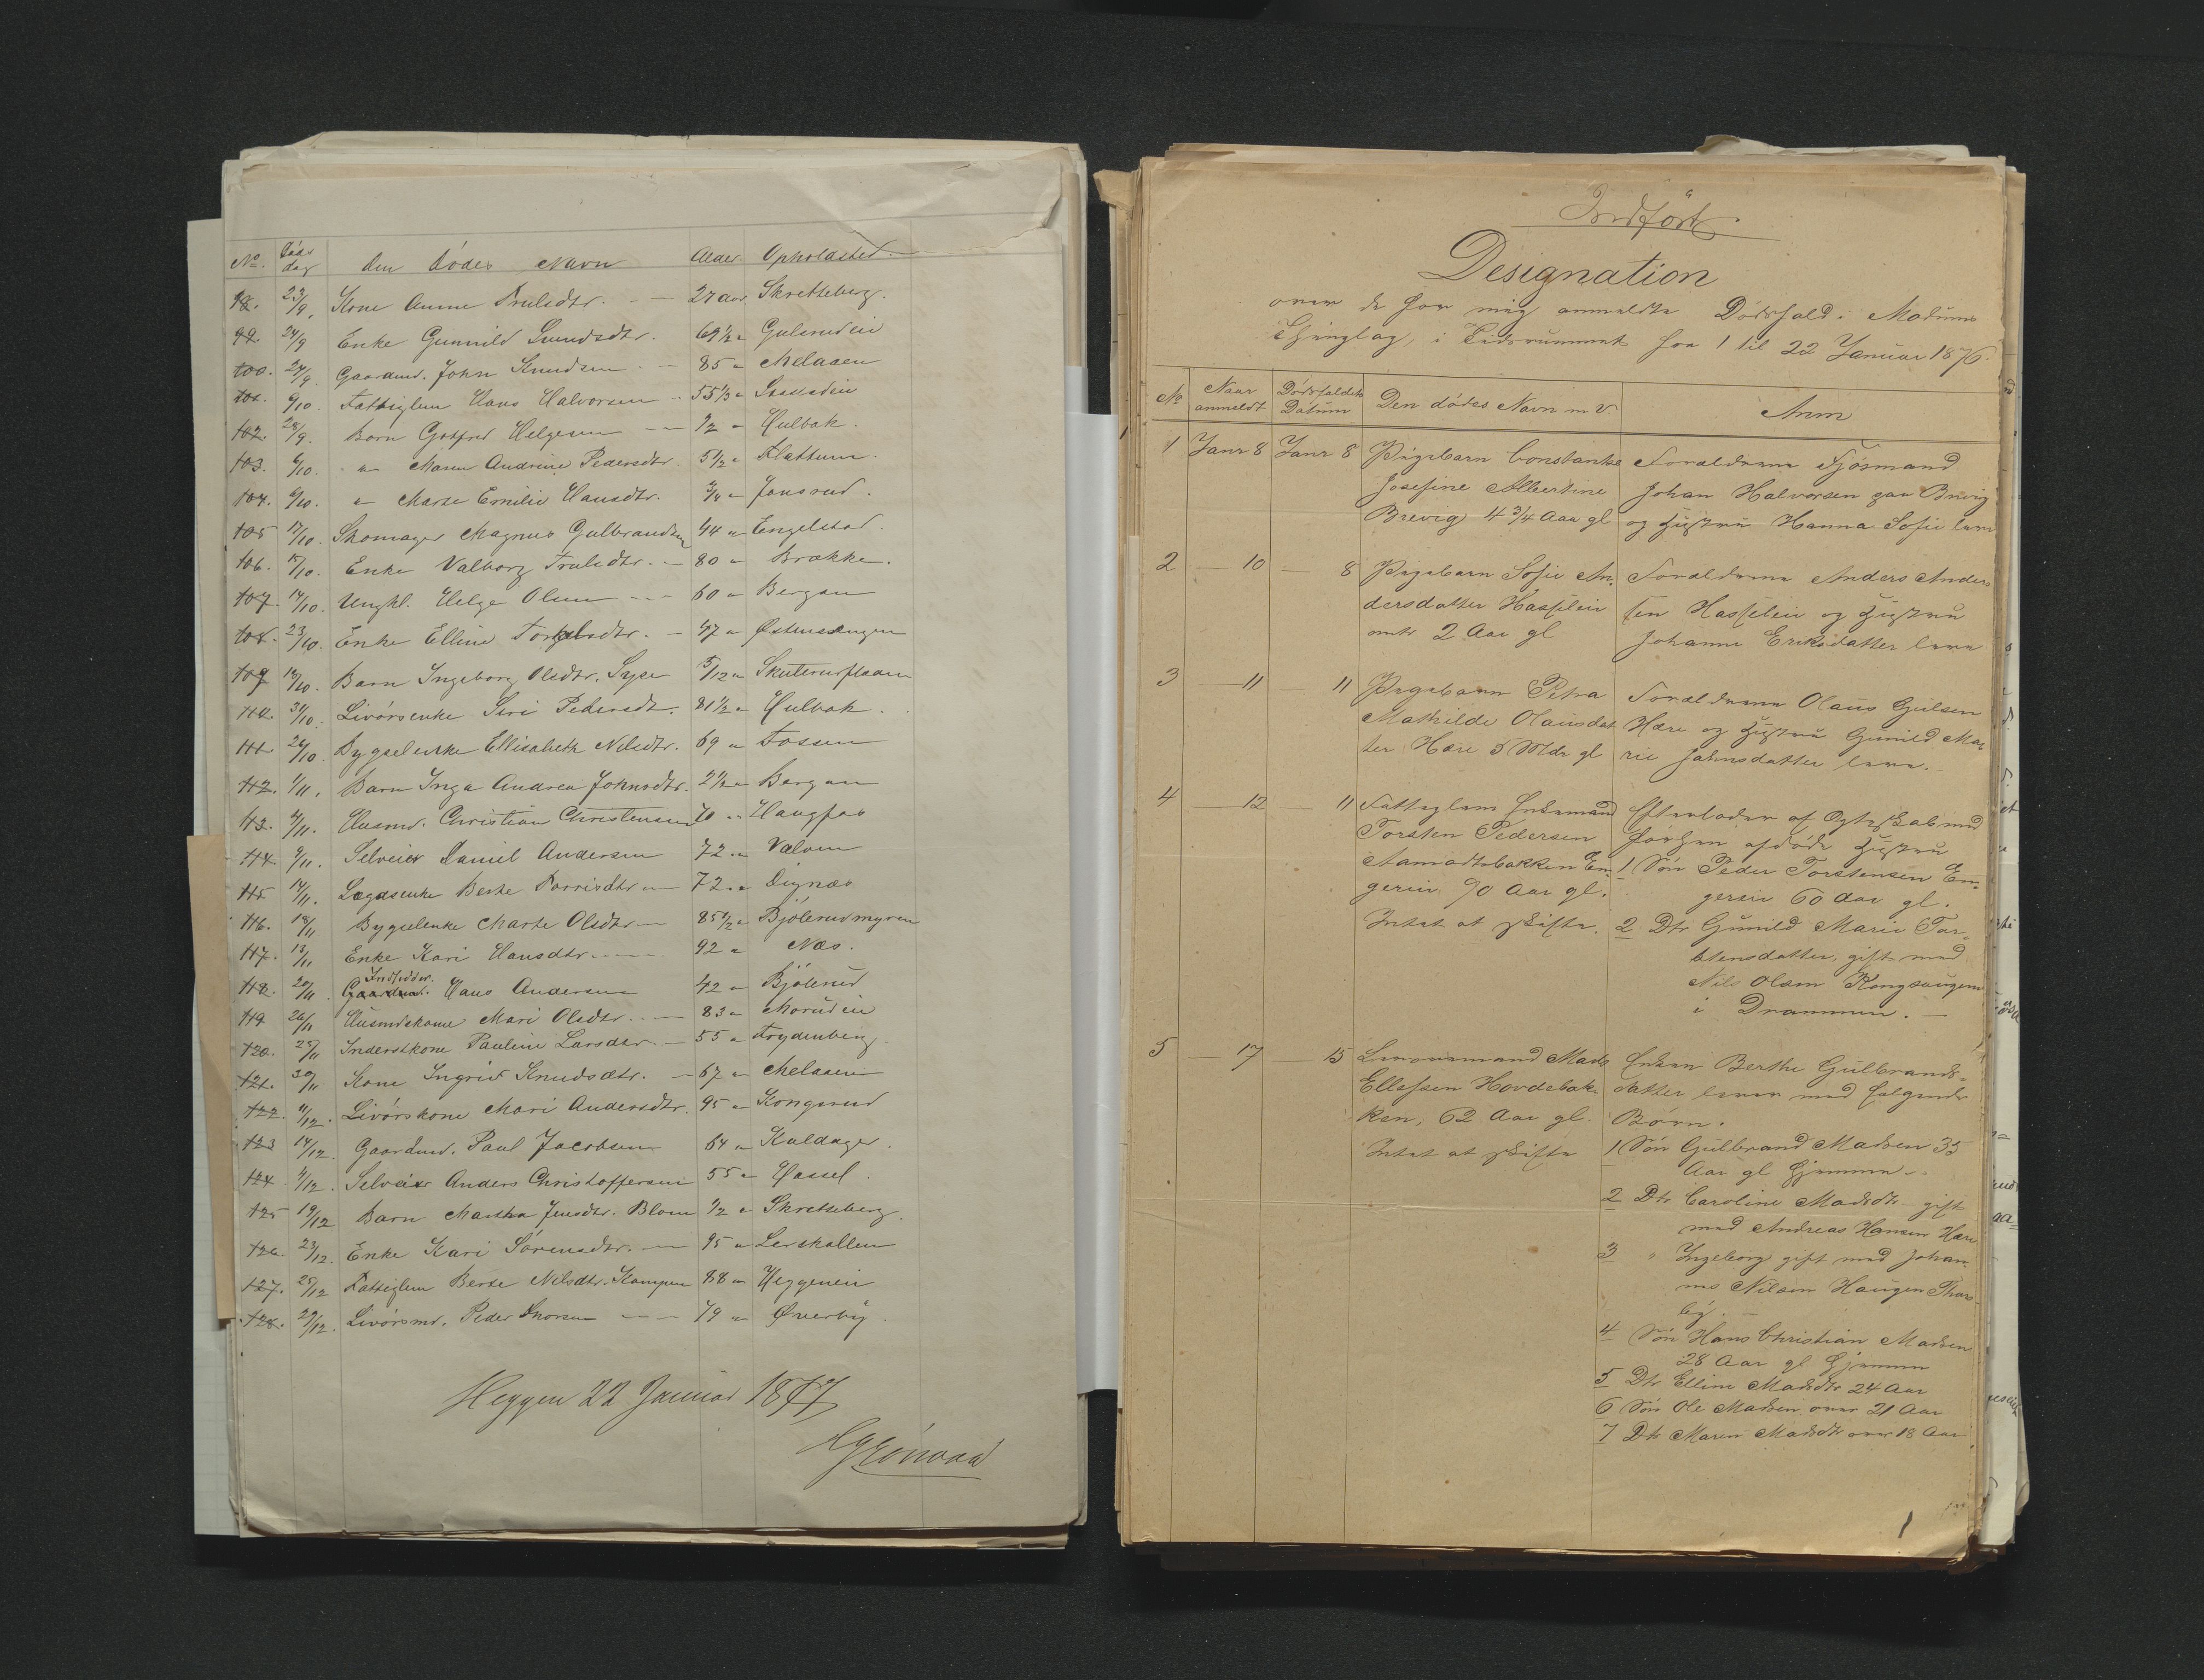 No. Døds dag Den Dødes Navn Alder. Opholdsted.
98. 23/9. Kone Anne Trulsdtr. 27 aar Skretteberg.
99. 24/9 Enke Gunnild 69 1/2 " Gulsrudeie
100. 27/9. Gaardmd. John Knudsen 85 " Melaaen
101. 6/10. Fattiglem Hans Halvorsen 55 1/3 "
102. 28/9. Barn Gotfred Helgesen 1/2 " Hulbak.
103. 6/10. " Maren Andrine Pedersdtr. 5 1/2 " Flattum.
104. 6/10. " Marte Emilie Hansdtr. 3/4 " Jonsrud.
105 12/10. Skomager Magnus Gulbrandsen 44 " Engelstad.
106. 17/10. Enke Valborg Trulsdtr. 80 " Brække.
107. 14/10. Ungkl. Helge Olsen 60 " Bergan
108. 23/10. Enke Elline 47 " Østensengen
109 19/10. Barn Ingeborg Olsdtr. 5/12 "
110. 31/10. Livørsenke Siri Pedersdt. 81 1/2 " Hulbak.
111. 26/10. Bygselenke Ellisabeth Nilsdtr. 69 " Fossen
112. 1/11. Barn Inga Andrea Johnsdtr. 2 1/2 " Bergan
113. 4/11. Husmd. Christian Christensen 70 " Haugfos
114. 9/11. Selveier Daniel Andersen 72 " Vælven
115 14/11. Lægdsenke Berte 72 " Dignæs
116. 18/11 Bygselenke Marte Olsdtr 85 1/2 " Bjølerudmyren
117. 13/11 Enke Kari Hansdtr 92 " Næs.
Indsidder.
118. 20/11. Gaardmd. Hans Andersen 42 " Bjølerud
119 26/11 Husmdskone Mari Olsdtr. 83 " Morudeie
120. 25/11 Inderstkone Pauline Larsdtr. 55 " Frydenberg
121. 30/11 Kone Ingrid Knudsdtr. 67 " Melaaen
122. 11/12. Livørskone Mari Andersdtr. 95 " Kongsrud
123 14/12. Gaardmd. Paul Jacobsen 64 " Kaldager.
124 4/12. Selveier Anders Christoffersen 55 " Hassel.
125 19/12 Barn Martha Jensdtr. Blom 1/2 " Skretteberg.
126. 23/12. Enke Kari Sørensdtr. 95 " Lerskallen
127. 25/12 Fattiglem Berte Nilsdtr. Kampen 88 " Heggeneie
128. 29/12. Livørsmd. Peder Snorsen 79 " Øverby.
Heggen 22 Januar 1877
Indført.
Designation
over de for mig anmeldte Dødsfald i Modums
Thinglag, i Tidsrummet fra 1 til 22 Januar 1876.
No Naar anmeldt Dødsfaldets Datum Den dødes Navn m v. Anm
1 Janr 8 Janr 8 Pigebarn Constanse Forældrene Fjøsmand
Josefine Albertine Johan Halvorsen paa Brevig
Brevig 4 3/4 Aar gl og Hustru Hanna Sofie lever
2 — 10 — 8 Pigebarn Sofie An- Forældrene Anders Anders
dersdatter Hasseleie sen Hasseleie og Hustru
omtr 2 Aar gl Johanne Eriksdatter lever
3 — 11 — 11 Pigebarn Petra Forældrene Olaus Gulsen
Mathilde Olausdat Hære og Hustru Gunild Ma
ter Hære 5 Mdr gl rie Jahnsdatter lever.
4 — 12 — 11 Fattiglem Enkemand Efterlader af Ægteskab med
Torsten Pedersen forhen afdøde Hustru
Aamodtsbakken En- 1 Søn Peder Torstensen En-
gereie 90 Aar gl. gereie 60 Aar gl.
Intet at skifte. 2 Dtr Gunild Marie Tor-
stensdatter, gift med
Nils Olsen Kongsaugen
i Drammen. —
5 — 17 — 15 Mads Enken Berthe Gulbrands-
Ellefsen Hovdebak- datter lever med følgende
ken, 62 Aar gl. Børn.
Intet at skifte 1 Søn Gulbrand Madsen 35
Aar gl hjemme —
2 Dtr Caroline Madsdtr gift
med Andreas Hansen Hære
3 " Ingeborg gift med Johan-
nes Nilsen Haugen Thors-
by. —
4 Søn Hans Christian Madsen
28 Aar gl hjemme
5 Dtr Elline Madsdtr 24 Aar
6 Søn Ole Madsen over 21 Aar
7 Dtr Maren Madsdtr over 18 Aar
1